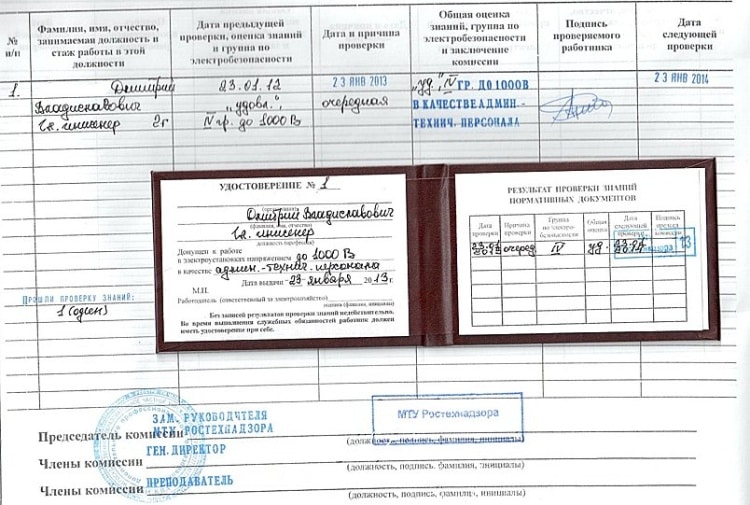 № п/п
Фамилия, имя, отчество, занимаемая должность и стаж работы в этой должности
Дата предыдущей проверки, оценка знаний и группа по электробезопасности
Дата и причина проверки
Общая оценка знаний, группа по электробезопасности и заключение комиссии
Подпись проверяемого работника
Дата следующей проверки
1. Дмитрий 23.01.12 23 ЯНВ 2013 „уд", IV ГР. ДО 1000В 23 ЯНВ 2014
Владиславович „удовл.", очередная В КАЧЕСТВЕ АДМИН.-
Гл. инженер 2г IV гр. до 1000 В ТЕХНИЧ. ПЕРСОНАЛА
УДОСТОВЕРЕНИЕ № 1
(организация)
Дмитрий Владиславович
(фамилия, имя, отчество)
Гл. инженер
должность(профессия)
Допущен к работе
в электроустановках напряжением до 1000 В
в качестве админ.-технич. персонала
Дата выдачи «23» января 2013г.
М.П.
Работодатель (ответственный за электрохозяйство)
подпись (фамилия, инициалы)
Без записей результатов проверки знаний недействительно.
Во время выполнения служебных обязанностей работник должен
иметь удостоверение при себе.
РЕЗУЛЬТАТ ПРОВЕРКИ ЗНАНИЙ
НОРМАТИВНЫХ ДОКУМЕНТОВ
Дата проверки
Причина проверки
Группа по электро-безопасности
Общая оценка
Дата следующей проверки
Подпись
23.01 2013 очеред IV уд. 23.01 2014
ПРОШЛИ ПРОВЕРКУ ЗНАНИЙ:
1 (один)
ЗАМ. РУКОВОДИТЕЛЯ
МТУ РОСТЕХНАДЗОРА
МТУ Ростехнадзора
Председатель комиссии
(должность, подпись, фамилия, инициалы)
ГЕН. ДИРЕКТОР
Члены комиссии
(должность, подпись, фамилия, инициалы)
ПРЕПОДАВАТЕЛЬ
Члены комиссии
(должность, подпись, фамилия, инициалы)